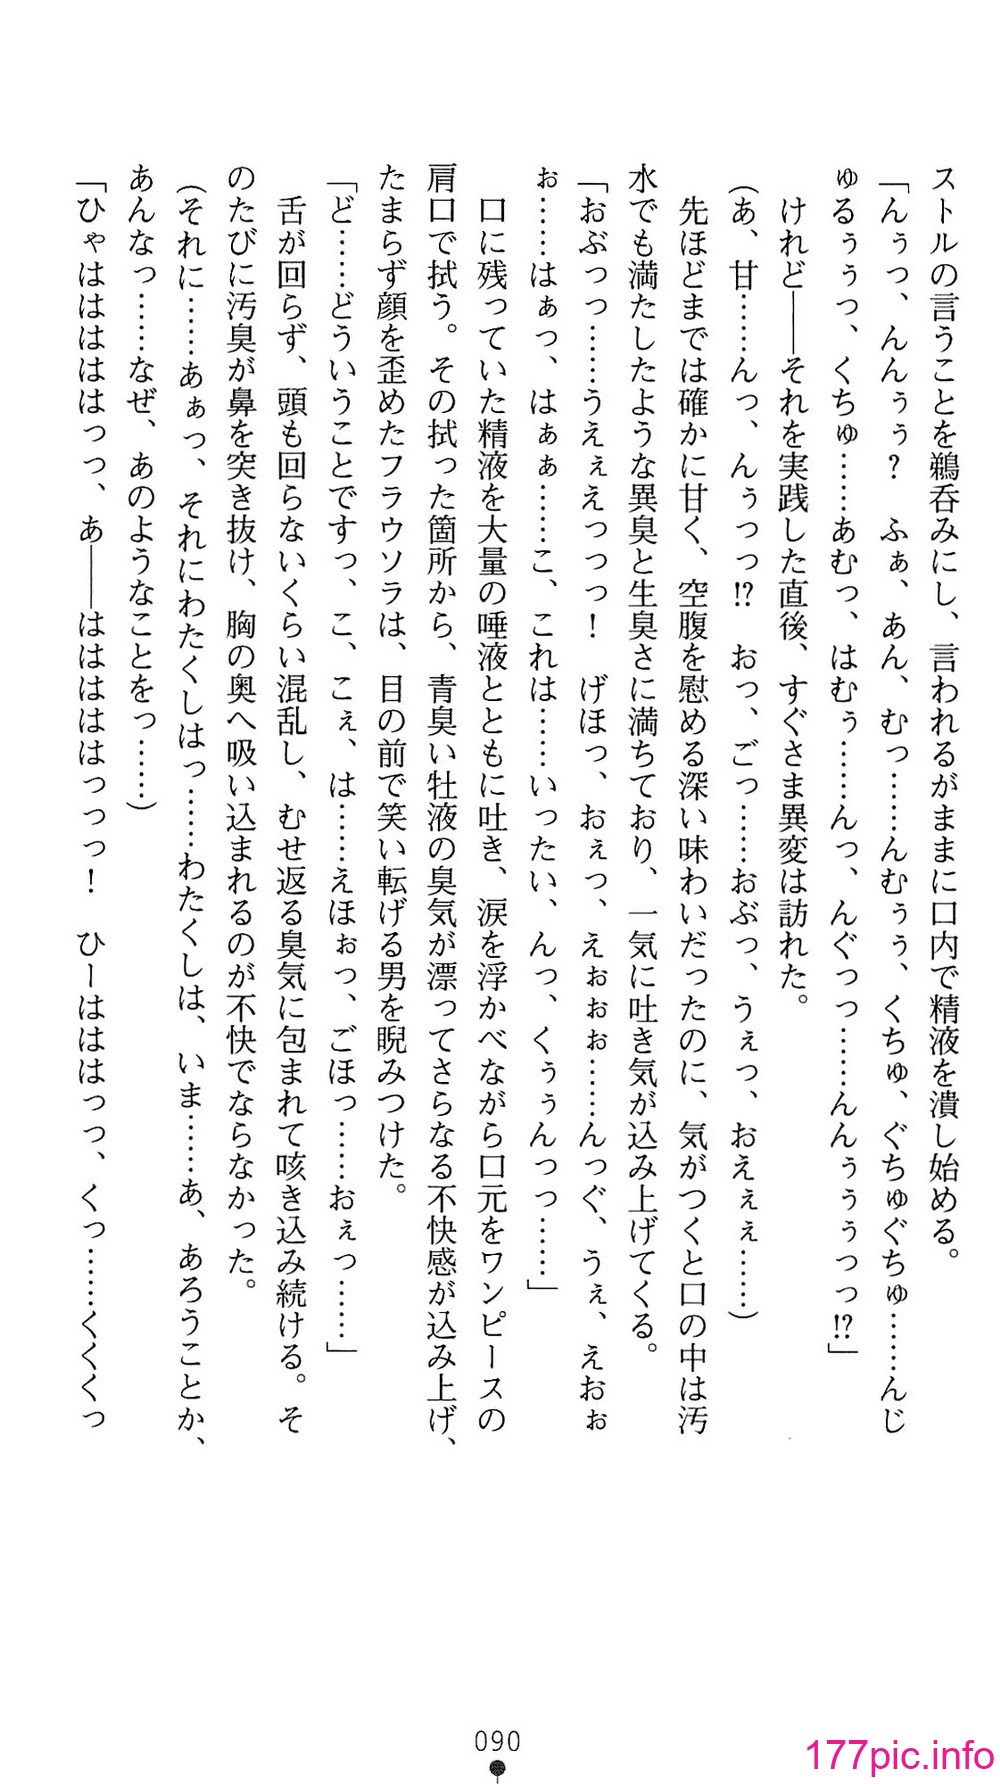 ストルの言うことを鵜呑みにし、言われるがままに口内で精液を潰し始める。
「んぅっ、んんぅぅ？　ふぁ、あん、むっ……んむぅぅ、くちゅ、ぐちゅぐちゅ……んじ
ゅるぅぅっ、くちゅ……あむっ、はむぅ……んっ、んぐっっ……んんぅぅぅっっ!?」
けれど――それを実践した直後、すぐさま異変は訪れた。
（あ、甘……んっ、んぅっっ!?　おっ、ごっ……おぶっ、うぇっ、おえぇぇ……）
先ほどまでは確かに甘く、空腹を慰める深い味わいだったのに、気がつくと口の中は汚
水でも満たしたような異臭と生臭さに満ちており、一気に吐き気が込み上げてくる。
「おぶっっ……うえぇえっっっ！　げほっ、おぇっ、えぉぉぉ……んっぐ、うぇ、えおぉ
ぉ……はぁっ、はぁぁ……こ、これは……いったい、んっ、くぅぅんっっ……」
口に残っていた精液を大量の唾液とともに吐き、涙を浮かべながら口元をワンピースの
肩口で拭う。その拭った箇所から、青臭い牡液の臭気が漂ってさらなる不快感が込み上げ、
たまらず顔を歪めたフラウソラは、目の前で笑い転げる男を睨みつけた。
「ど……どういうことですっ、こ、こぇ、は……えほぉっ、ごほっ……おぇっ……」
舌が回らず、頭も回らないくらい混乱し、むせ返る臭気に包まれて咳き込み続ける。そ
のたびに汚臭が鼻を突き抜け、胸の奥へ吸い込まれるのが不快でならなかった。
（それに……あぁっ、それにわたくしはっ……わたくしは、いま……あ、あろうことか、
あんなっ……なぜ、あのようなことをっ……）
「ひゃははははっっ、あ――ははははははっっっ！　ひーはははっっ、くっ……くくくっ
090
177pic.info